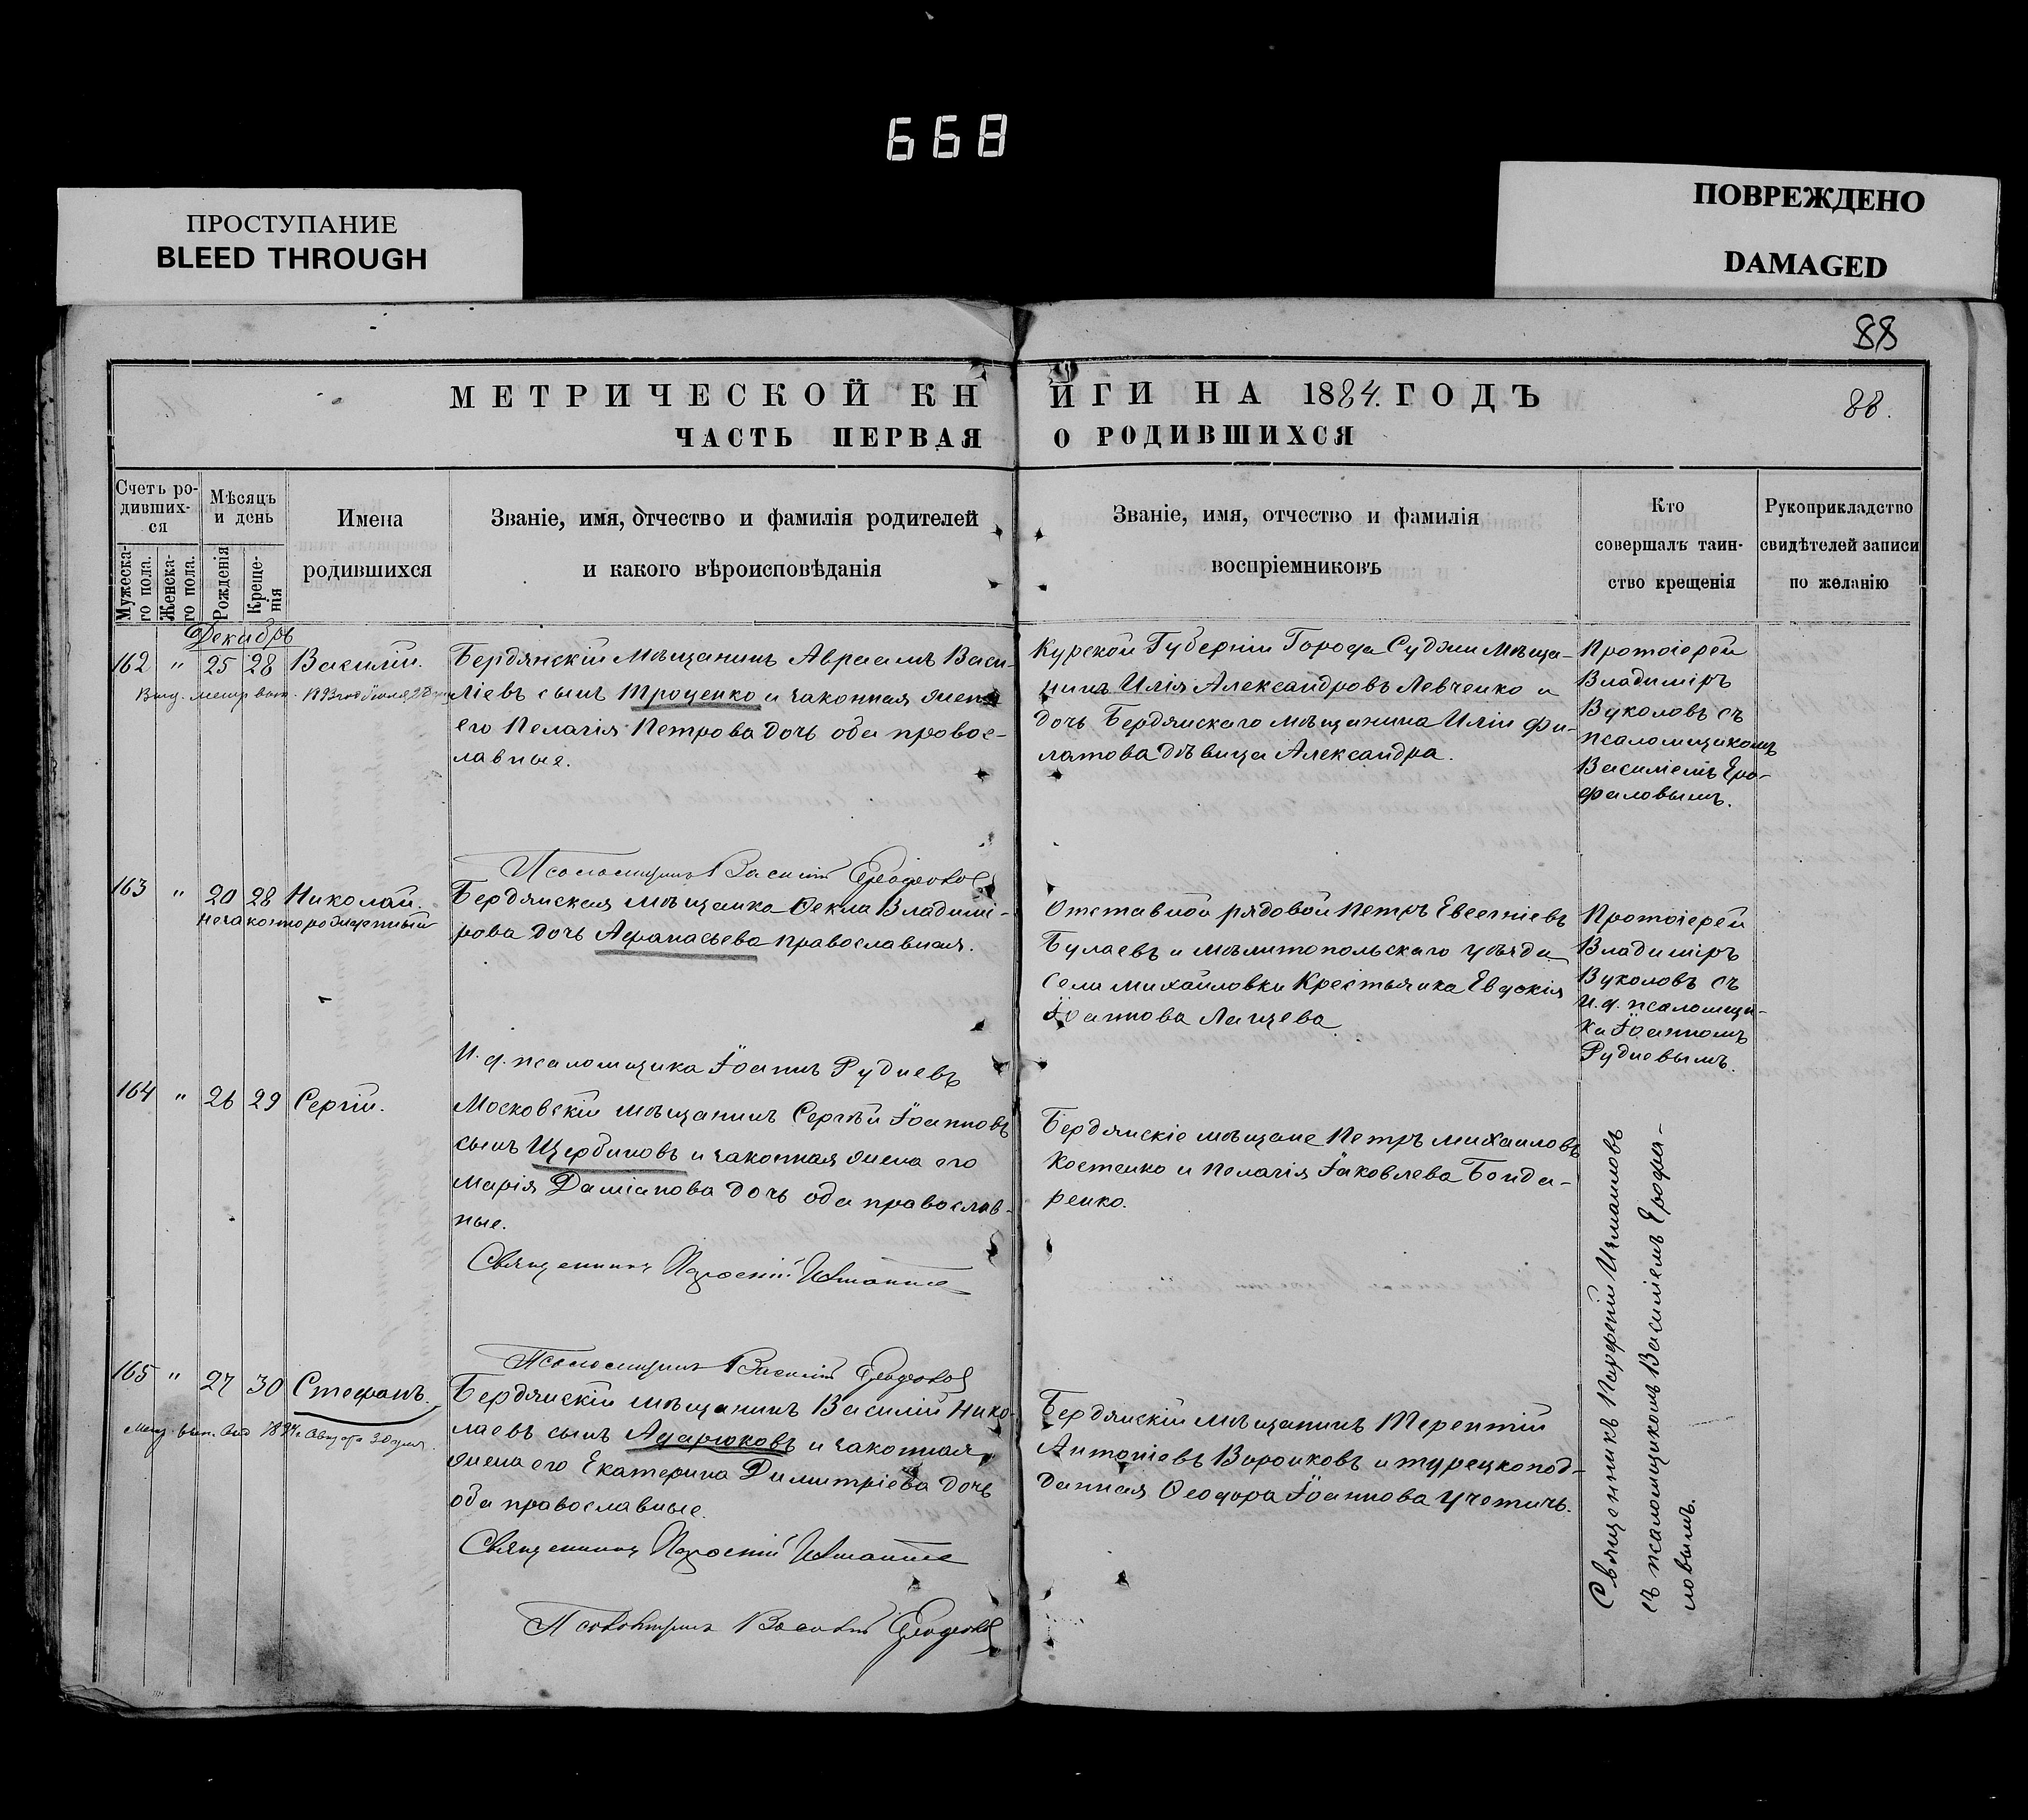 668
ПРОСТУПАНИЕ
BLEED THROUGH
ПОВРЕЖДЕНО
DAMAGED
88
МЕТРИЧЕСКОЙ КНИГИ НА 1884. ГОДЪ
88.
ЧАСТЬ ПЕРВАЯ О РОДИВШИХСЯ
Счетъ ро-
дивших-
ся
Мужеска-
го пола.
Женска-
го пола.
Мѣсяцъ
и день
Рожденія
Креще-
нія
Имена
родившихся
Званіе, имя, отчество и фамилія родителей
и какого вѣроисповѣданія
Званіе, имя, отчество и фамилія
воспріемниковъ
Кто
совершалъ таин-
ство крещенія
Рукоприкладство
свидѣтелей записи
по желанію
Декабрь
162 " 25 28 Василій.
Выд. метр. вып.
Бердянскій мѣщанинъ Авраамъ Васи-
ліевъ сынъ Троценко и законная жена
его Пелагія Петрова дочь оба правос-
лавные.
Курской Губерніи Города Суджи мѣща-
нинъ Илія Александровъ Левченко и
дочь Бердянскаго мѣщанина Иліи Фи-
латова дѣвица Александра.
Протоіерей
Владиміръ
Вуколовъ съ
псаломщикомъ
Василіемъ Еро-
фаловымъ.
Псаломщикъ Василій
163 " 20 28 Николай.
незаконнорожденный
Бердянская мѣщанка Ѳекла Владимі-
рова дочь Афанасьева православная.
Отставной рядовой Петръ Евсегніевъ
Булаевъ и мѣлитопольскаго уѣзда
села Михайловки Крестьянка Евдокія
Іоаннова Лащева
Протоіерей
Владиміръ
Вуколовъ съ
И. д. псаломщи-
ка Іоанномъ
Рудневымъ.
И. д. псаломщика Іоаннъ Рудневъ
164 " 26 29 Сергій.
Московскій мѣщанинъ Сергѣй Іоанновъ
сынъ Щербиновъ и законная жена его
Марія Даміанова дочь оба православ-
ные.
Бердянскіе мѣщане Петръ Михаиловъ
Костенко и Пелагія Іаковлева Бонда-
ренко.
Священникъ Порфирій
Псаломщикъ Василій
Священникъ Порфирій Изманловъ
съ псаломщикомъ Василіемъ Ерофа-
ловымъ.
165 " 27 30 Стефанъ.
Метр. вып. выд. Августа 30 дня.
Бердянскій мѣщанинъ Василій Нико-
лаевъ сынъ Адарюковъ и законная
жена его Екатерина Димитріева дочь
оба православные.
Бердянскій мѣщанинъ Терентій
Антоніевъ Воронковъ и турецкопод-
данная Ѳеодора Іоаннова Учетичъ.
Священникъ Порфирій
Псаломщикъ Василій